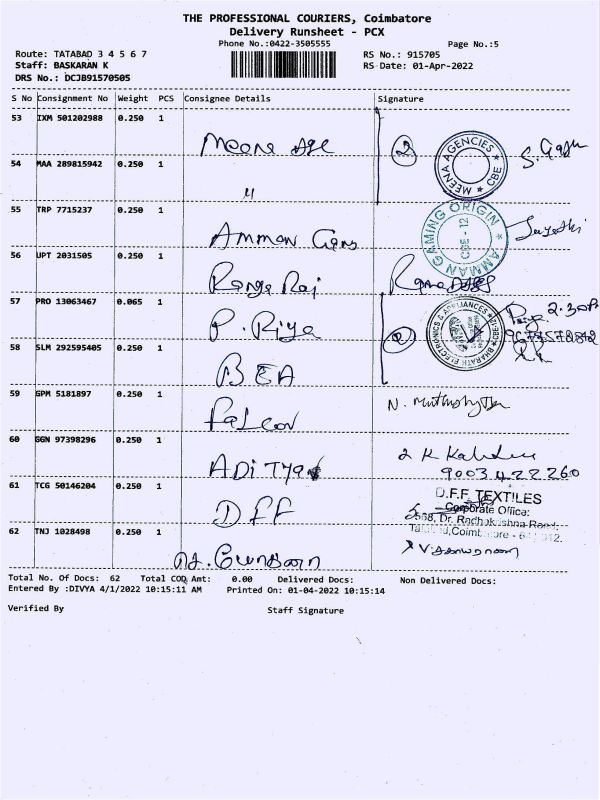 THE PROFESSIONAL COURIERS, Coimbatore
Delivery Runsheet - PCX
Phone No.:0422-3505555
Page No.:5
Route: TATABAD 3 4 5 6 7
RS No.: 915705
Staff: BASKARAN K
RS Date: 01-Apr-2022
DRS No.: DCJB91570505
S No Consignment No Weight PCS Consignee Details Signature
53 IXM 501202988 0.250 1
Meena
2
MEENA AGENCIES ★ CBE ★
54 MAA 289815942 0.250 1
"
55 TRP 7715237 0.250 1
Amman
AMMAN GAMING ORIGIN
CBE - 12
56 UPT 2031505 0.250 1
Ranga Raj
57 PRO 13063467 0.065 1
P. Riya
Priya 2.30
BHARATH ELECTRONICS & APPLIANCES
2
58 SLM 292595405 0.250 1
BEA
59 GPM 5181897 0.250 1
Falcon
60 GGN 97398296 0.250 1
ADITYA
9003422260
61 TCG 50146204 0.250 1
DFF
D.F.F. TEXTILES
Corporate Office:
568, Dr. Radhakrishna Road,
Coimbatore - 641 012.
62 TNJ 1028498 0.250 1
Total No. Of Docs: 62 Total COD Amt: 0.00 Delivered Docs: Non Delivered Docs:
Entered By :DIVYA 4/1/2022 10:15:11 AM Printed On: 01-04-2022 10:15:14
Verified By Staff Signature